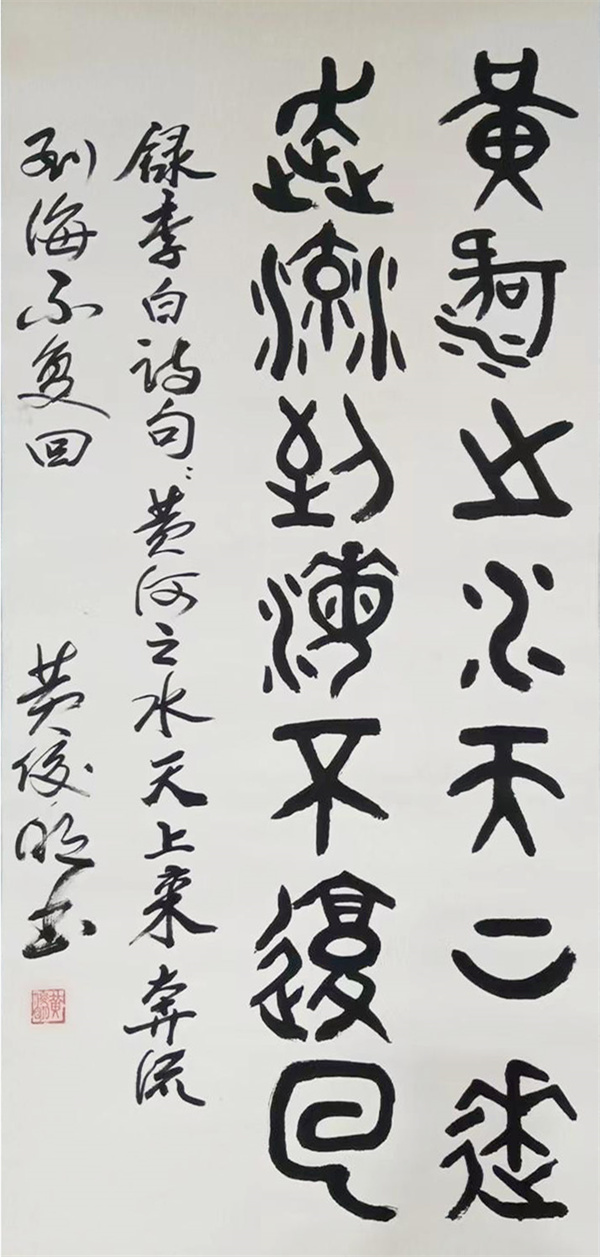 黄河之水天上来
奔流到海不复回
录李白诗句：黄河之水天上来奔流
到海不复回　黄俊明书